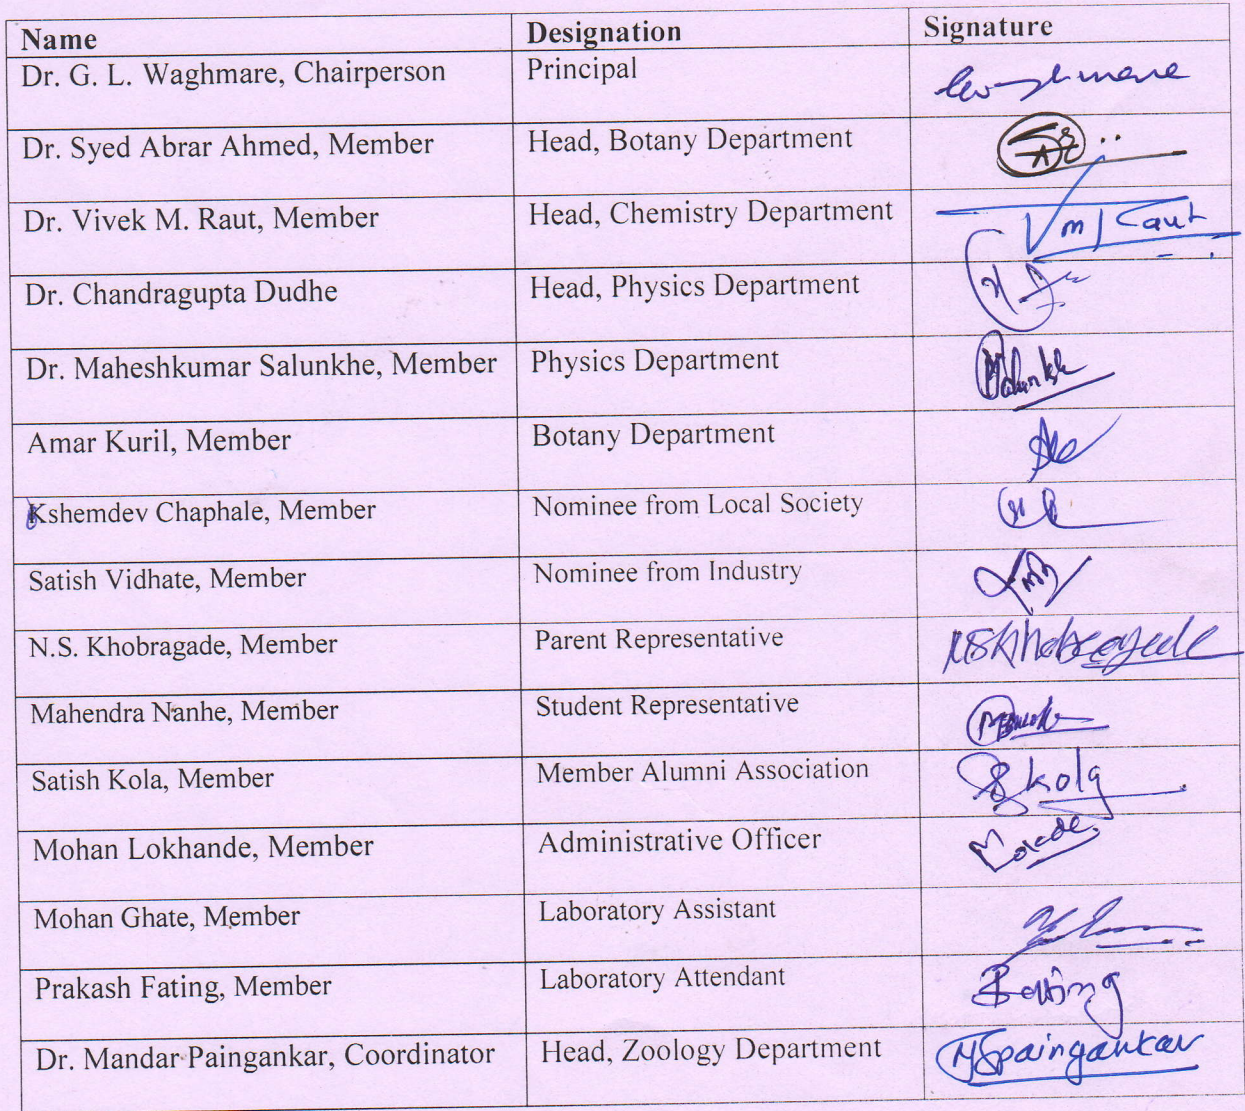 Name Designation Signature
Dr. G. L. Waghmare, Chairperson Principal Waghmare
Dr. Syed Abrar Ahmed, Member Head, Botany Department
Dr. Vivek M. Raut, Member Head, Chemistry Department VM Raut
Dr. Chandragupta Dudhe Head, Physics Department
Dr. Maheshkumar Salunkhe, Member Physics Department
Amar Kuril, Member Botany Department
Kshemdev Chaphale, Member Nominee from Local Society
Satish Vidhate, Member Nominee from Industry
N.S. Khobragade, Member Parent Representative NSKhobragade
Mahendra Nanhe, Member Student Representative
Satish Kola, Member Member Alumni Association Skola
Mohan Lokhande, Member Administrative Officer
Mohan Ghate, Member Laboratory Assistant
Prakash Fating, Member Laboratory Attendant Fating
Dr. Mandar Paingankar, Coordinator Head, Zoology Department MSpaingankar